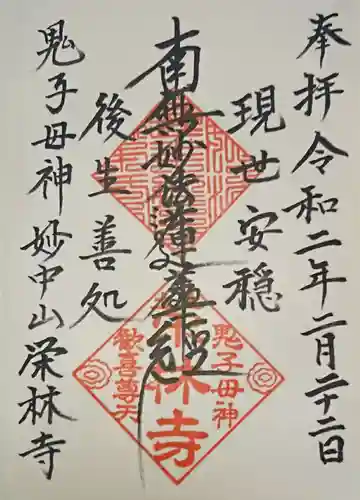 奉拝 令和二年二月二十二日
現世安穏
南無妙法蓮華経
後生善処
鬼子母神 妙中山 栄林寺
鬼子母神
栄林寺
歓喜尊天